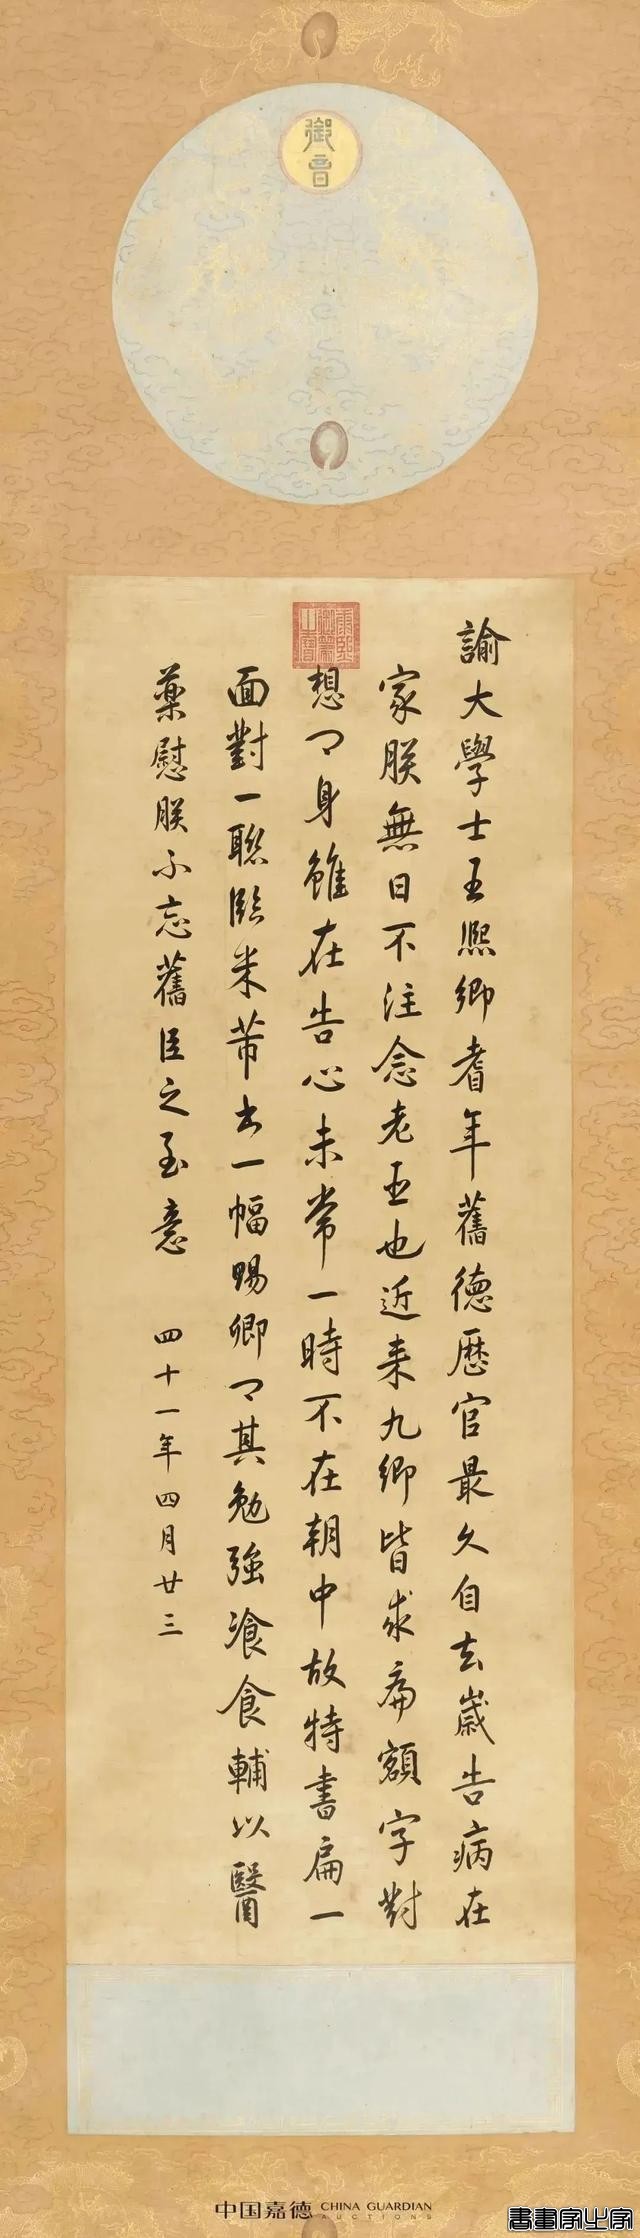 御音
康熙御筆之寶
諭大學士王熙卿耆年舊德歷官最久自去歲告病在
家朕無日不注念老臣也近来九卿皆求扁額字對
想卿身雖在告心未常一時不在朝中故特書扁一
面對一聯臨米芾書一幅賜卿卿其勉強飡食輔以醫
藥慰朕不忘舊臣之至意
四十一年四月廿三
中国嘉德 CHINA GUARDIAN
AUCTIONS
書畫家之家